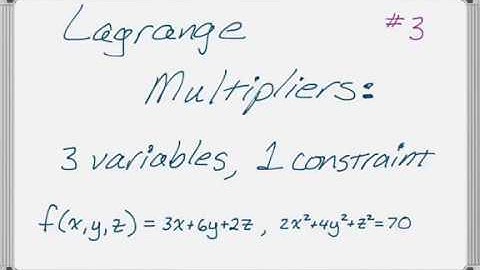 Lagrange #3
Multipliers:
3 variables, 1 constraint
f(x,y,z) = 3x+6y+2z , 2x²+4y²+z²=70